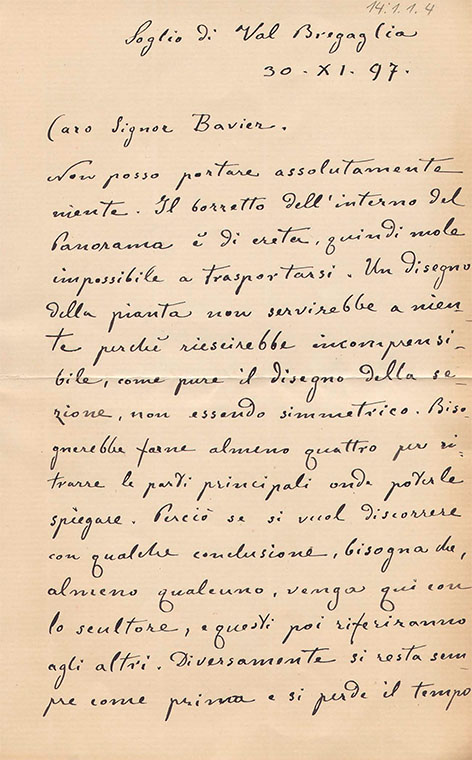 14.1.1.4
Soglio di Val Bregaglia
30-XI.97.
Caro Signor Bavier.
Non posso portare assolutamente
niente. Il borretto dell'interno del
Panorama è di creta, quindi mole
impossibile a trasportarsi. Un disegno
della pianta non servirebbe a nien-
te perchè riescirebbe incomprensi-
bile, come pure il disegno della se-
zione, non essendo simmetrico. Biso-
gnerebbe farne almeno quattro per ri-
trarre le parti principali onde poterle
spiegare. Perciò se si vuol discorrere
con qualche conclusione, bisogna che,
almeno qualcuno, venga qui con
lo scultore, e questi poi riferiranno
agli altri. Diversamente si resta sem
pre come prima e si perde il tempo